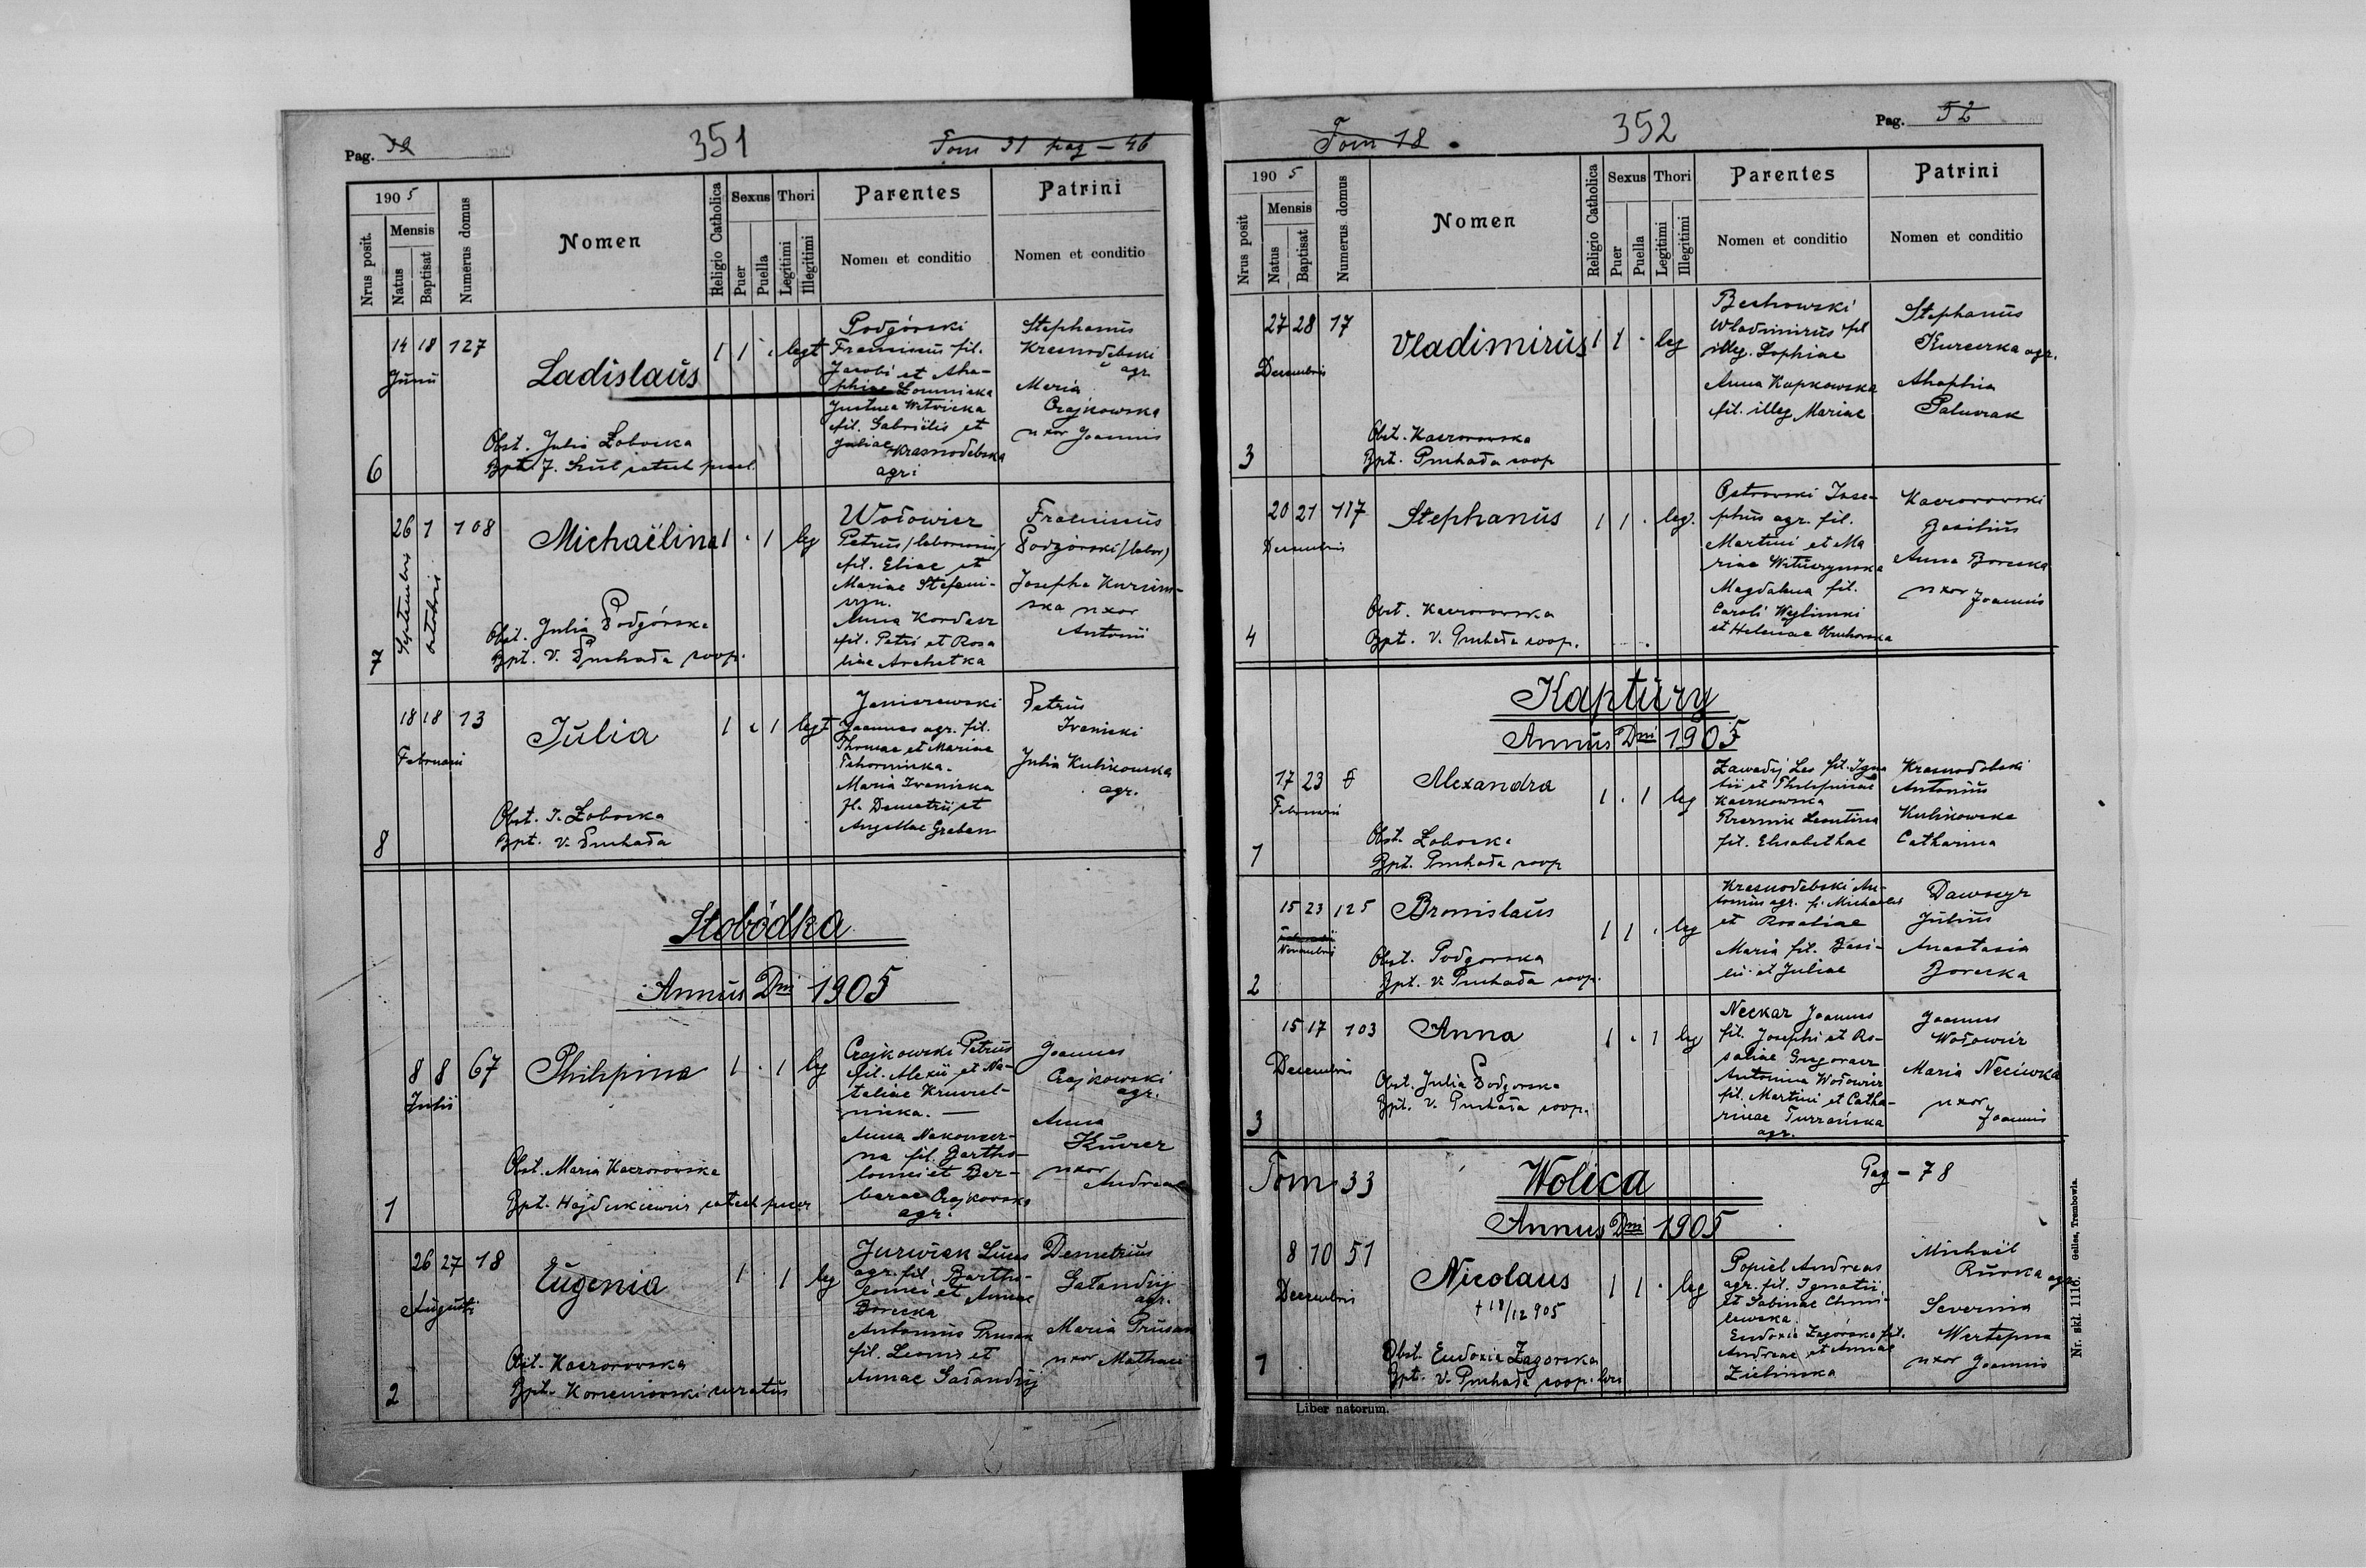 Pag. 351 Tom 31 pag - 46
1905
Nrus posit.
Mensis
Natus
Baptisat
Numerus domus
Nomen
Religio Catholica
Sexus
Puer
Puella
Thori
Legitimi
Illegitimi
Parentes
Nomen et conditio
Patrini
Nomen et conditio
6
14 18 127
Junii
Ladislaus
1 1 . legt
Obst. Julia Zaborska
Bpt. J.
Podgórski
Franciscus fil.
Jacobi et Aha-
phiae
Justina Witvicka
fil. Gabriëlis et
Juliae Krasnodebska
agri
Stephanus
Krasnodebski
agr.
Maria
Czajkowska
uxor Joannis
7
26 1 108
Septembris Octobris
Michaëlina
1 . 1 leg
Obst. Julia Podgórska
Bpt. V. Puchada coop.
Wołowicz
Petrus /laborius/
fil. Eliae et
Mariae Stefani-
szyn.
Anna Kordasz
fil. Petri et Rosa
liae Archetka
Franciscus
Podgórski /labor/
Josepha
uxor
Antonii
8
18 18 13
Februarii
Julia
1 . 1 legt
Obst. J. Zaborska
Bpt. V. Puchada
Janiszewski
Joannes agr. fil.
Thomae et Mariae
Maria Ivanicka
fil. Demetrii et
Angellae Graban
Petrus
Ivanicki
Julia Kulikowska
agr.
Słobódka
Annus Dni 1905
1
8 8 67
Julii
Philipina
1 . 1 leg
Obst. Maria Kaczorovska
Bpt. Hajdukiewicz catech puer
Czajkowski Petrus
fil. Alexii et Na-
taliae
Anna
fil. Bartho-
lomei et Bar-
barae Czajkovska
agr.
Joannes
Czajkowski
agr.
Anna
uxor
Andreae
2
26 27 18
Augusti
Eugenia
1 . 1 leg
Obst. Kaczorovska
Bpt. Korzeniovski curatus
Lucas
agr. fil. Bartho-
lomei et Annae
Borecka
Prusak
fil. Leonis et
Annae Gałandzij
Demetrius
Gałandzij
agr.
Maria Prusak
uxor Mathaei
Tom 18 352 Pag. 52
1905
Nrus posit
Mensis
Natus
Baptisat
Numerus domus
Nomen
Religio Catholica
Sexus
Puer
Puella
Thori
Legitimi
Illegitimi
Parentes
Nomen et conditio
Patrini
Nomen et conditio
3
27 28 17
Decembris
Vladimirus
1 1 . leg
Obst. Kaczorovska
Bpt. Puchada coop
Wladimirus fil
illeg. Sophiae
Anna Kapkowska
fil. illeg Mariae
Stephanus
agr.
Ahaphia
4
20 21 117
Decembris
Stephanus
1 1 . leg.
Obst. Kaczorovska
Bpt. V. Puchada coop.
Ostrovski Jose-
phus agr. fil.
Martini et Ma
riae
Magdalena fil.
Caroli Węglinski
et Helenae
Kaczorowski
Basilius
Anna Borecka
uxor Joannis
Kaptury
Annus Dni 1905
1
17 23
Februarii
Alexandra
1 . 1 leg
Obst. Zaborska
Bpt. Puchada coop
Zawadij Leo fil. Igna
tii et Philipinae
Kaczkowska
Leontina
fil. Elisabethae
Krasnodebski
Antonius
Kulikowska
Catharina
2
15 23 125
Novembris
Bronislaus
1 1 . leg
Obst. Podgorska
Bpt. V. Puchada coop.
Krasnodebski An-
tonius agr. f. Michaelis
et Rosaliae
Maria fil. Basi-
lii et Juliae
Julius
Anastasia
Borecka
3
15 17 103
Decembris
Anna
1 . 1 leg
Obst. Julia Podgorska
Bpt. V. Puchada coop.
Neckar Joannes
fil. Josephi et Ro-
saliae
Antonina Wołowicz
fil. Martini et Catha-
rinae Turzańska
agr.
Joannes
Wołowicz
Maria
uxor
Joannis
Tom 33 Wolica Pag - 78
Annus Dni 1905
1
8 10 51
Decembris
Nicolaus
+ 18/12 905
1 1 . leg
Obst. Eudoxia Zagorska
Bpt. V. Puchada coop. loci
Popiel Andreas
agr. fil. Ignatii
et Sabinae Chmi-
lewska
Eudoxia Zagórska fil.
Andreae et Annae
Zielinska
Michaël
Rurka agr
Severina
Wertepna
uxor Joannis
Liber natorum.
Nr. skł. 1116. Gelles, Trembowla.